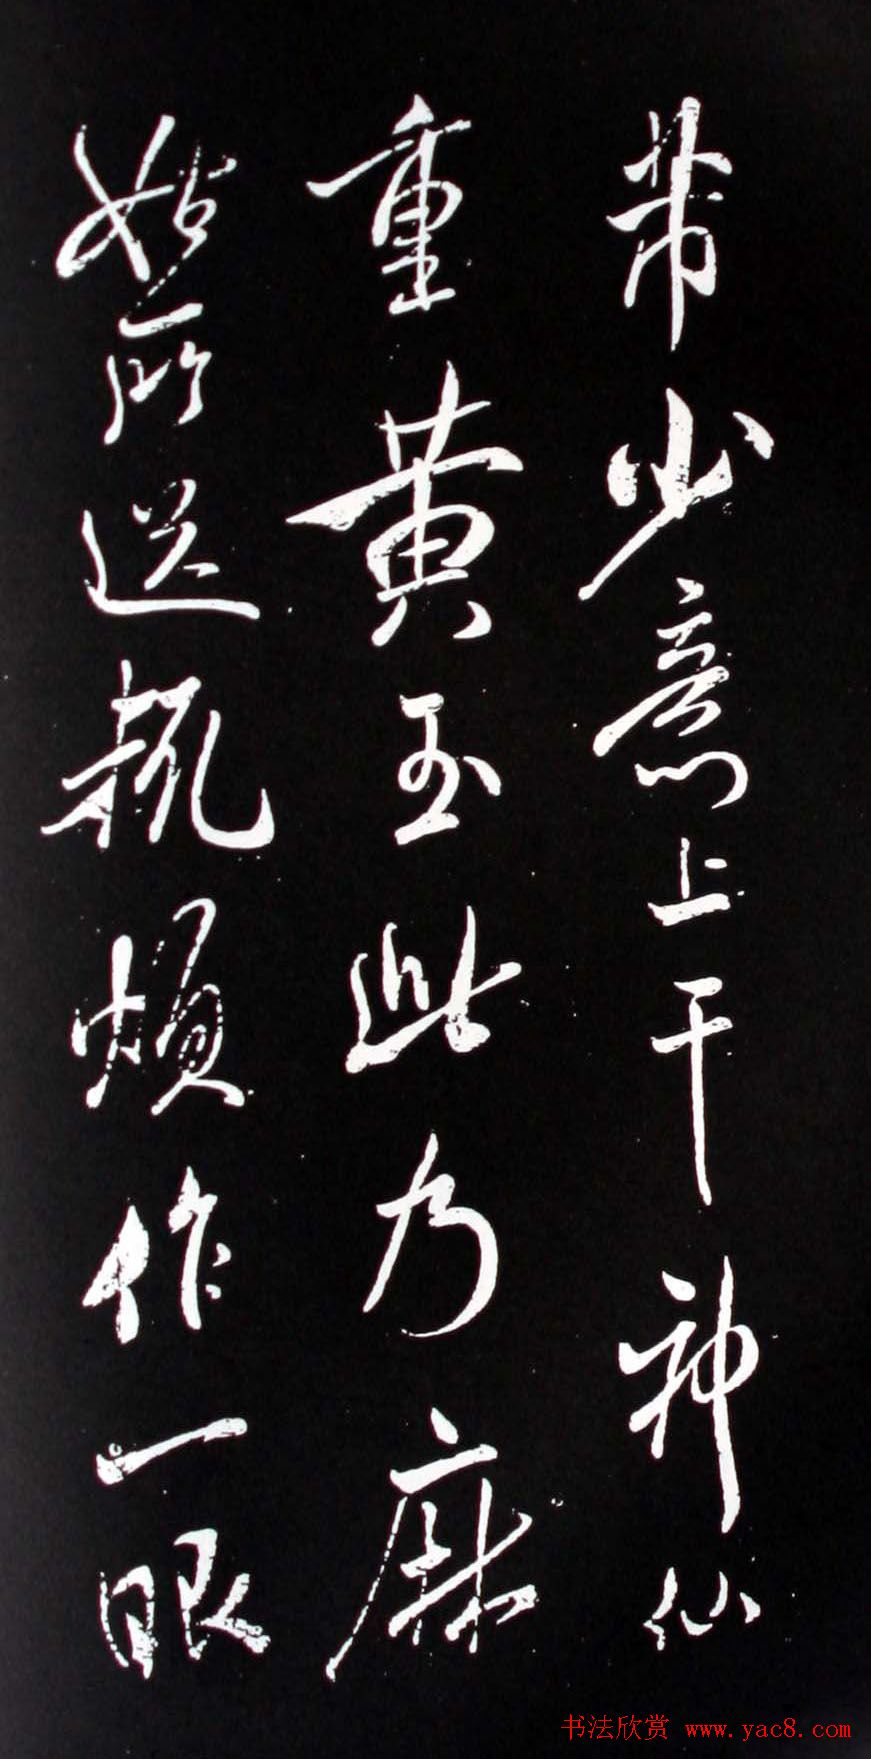 芾少意上干神仙
重黄玉此乃麻
姑所送輒煩作一眼
书法欣赏 www.yac8.com